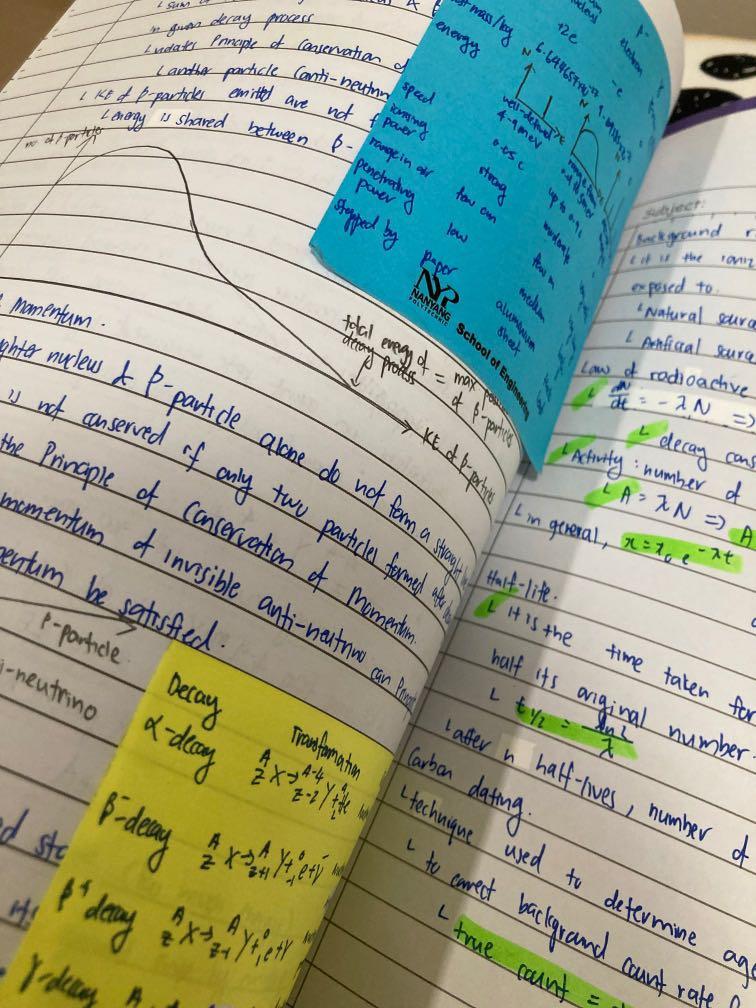 L sum of
in given decay process
L violates Principle of Conservation of
L another particle (anti-neutrin
L KE of β-particles emitted are not f
L energy is shared between β-
no. of β-particles
total energy of
decay process
= max
of β-particles
KE of β-particles
momentum.
ghter nucleus & β-particle alone do not form a straight
is not conserved if only two particles formed after
the Principle of Conservation of Momentum.
momentum of invisible anti-neutrino can
entum be satisfied.
β-particle
i-neutrino
mass/kg
energy
speed
ionising
power
range in air
penetrating
power
stopped by
+2e
N
well-defined
4-9 MeV
0.05 c
strong
few cm
low
paper
β-
electron
-e
N
up to 0.9c
moderate
few m
medium
aluminium
sheet
NYP
NANYANG
POLYTECHNIC
School of Engineering
Decay
Transformation
α-decay
A Z X → A-4 Z-2 Y + 4 2 He
β⁻-decay
A Z X → A Z+1 Y + 0 -1 e + ν̄
β⁺ decay
A Z X → A Z-1 Y + 0 1 e + ν
γ-decay
A
Subject:
Background r
L it is the ioni
exposed to.
L Natural sourc
L Artificial sourc
Law of radioactive
L dN/dt = -λN =>
L decay cons
L Activity: number of
L A = λN => A
L in general, x = x₀e^-λt
Half-life.
L it is the time taken for
half its original number.
L t1/2 = ln2/λ
L after n half-lives, number of
Carbon dating.
L technique used to determine age
L to correct background count rate
L true count =